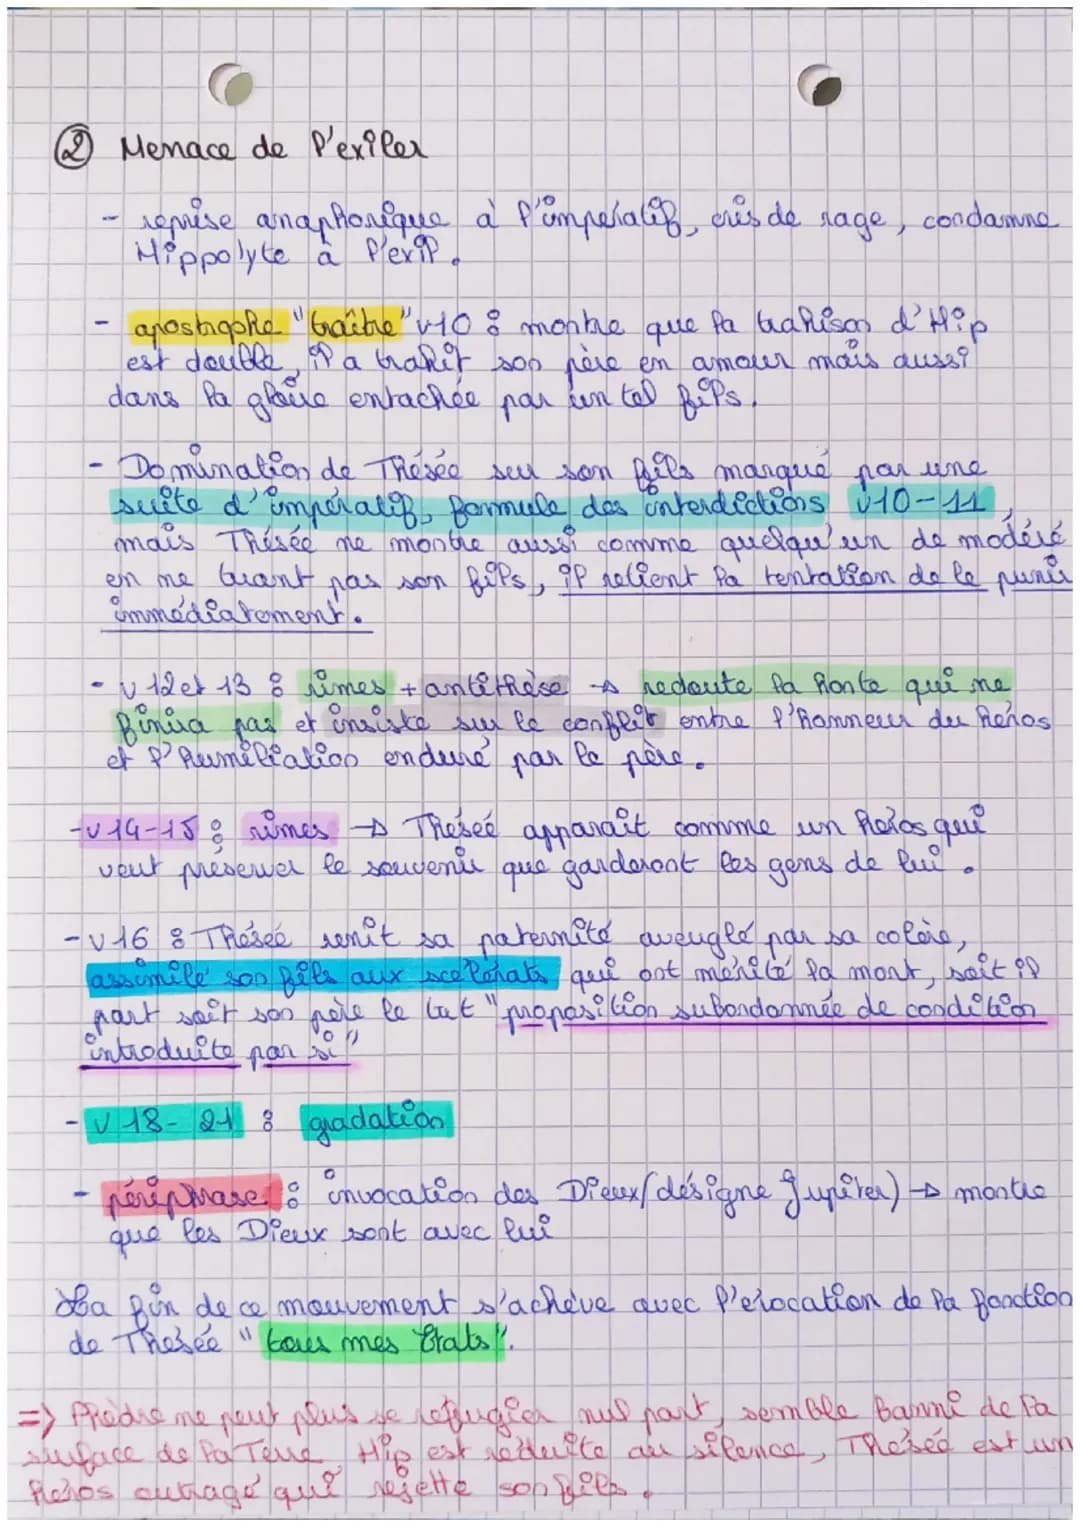 ② Menace de l'exiler
- reprise anaphorique à l'impératif, cris de rage, condamne
Hippolyte à l'exil.
- apostrophe "traître" v10 : montre que la trahison d'Hip
est double, il a trahit son père en amour mais aussi
dans la gloire entachée par un tel fils.
- Domination de Thésée sur son fils marqué par une
suite d'impératif, formule des interdictions v10-11,
mais Thésée ne montre aussi comme quelqu'un de modéré
en ne tuant pas son fils, il retient la tentation de le punir
immédiatement.
- v 12 et 13 : rimes + antithèse → redoute la honte qui ne
finira pas et insiste sur le conflit entre l'honneur du héros
et l'humiliation enduré par le père.
- v 14-15 : rimes → Thésée apparaît comme un héros qui
veut préserver le souvenir que garderont les gens de lui.
- v 16 : Thésée renit sa paternité aveuglé par sa colère,
assimilé son fils aux scélérats qui ont mérité la mort, soit il
part soit son père le tut "proposition subordonnée de condition
introduite par si"
- v 18 - 21 : gradation
- périphrase : invocation des Dieux (désigne Jupiter) → montre
que les Dieux sont avec lui
La fin de ce mouvement s'achève avec l'évocation de la fonction
de Thésée "tous mes Etats".
=> Phèdre ne peut plus se refugier nul part, semble banni de la
surface de la Terre, Hip est réduite au silence, Thésée est un
héros outragé qui rejette son fils.